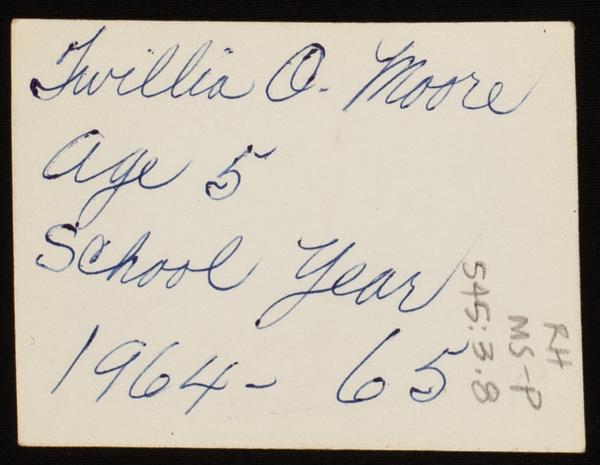 Twillia O. Moore
Age 5
School Year
1964- 65
RH
MS-P
545:3.8